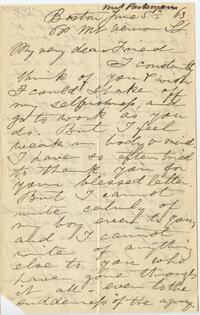 Mrs Parkman
Boston June 5th 65
Mt Vernon St.
My very dear Friend
I constantly
think of you & wish
I could shake off
my selfishness, and
go to work as you
do. But I feel
weak in body & mind
I have so often tried
to thank you for
your blessed letter.
But I cannot
write calmly of
my boy even to you,
and I cannot
write of anything
else to you who
have gone through
it all - even to the
suddenness of the agony.